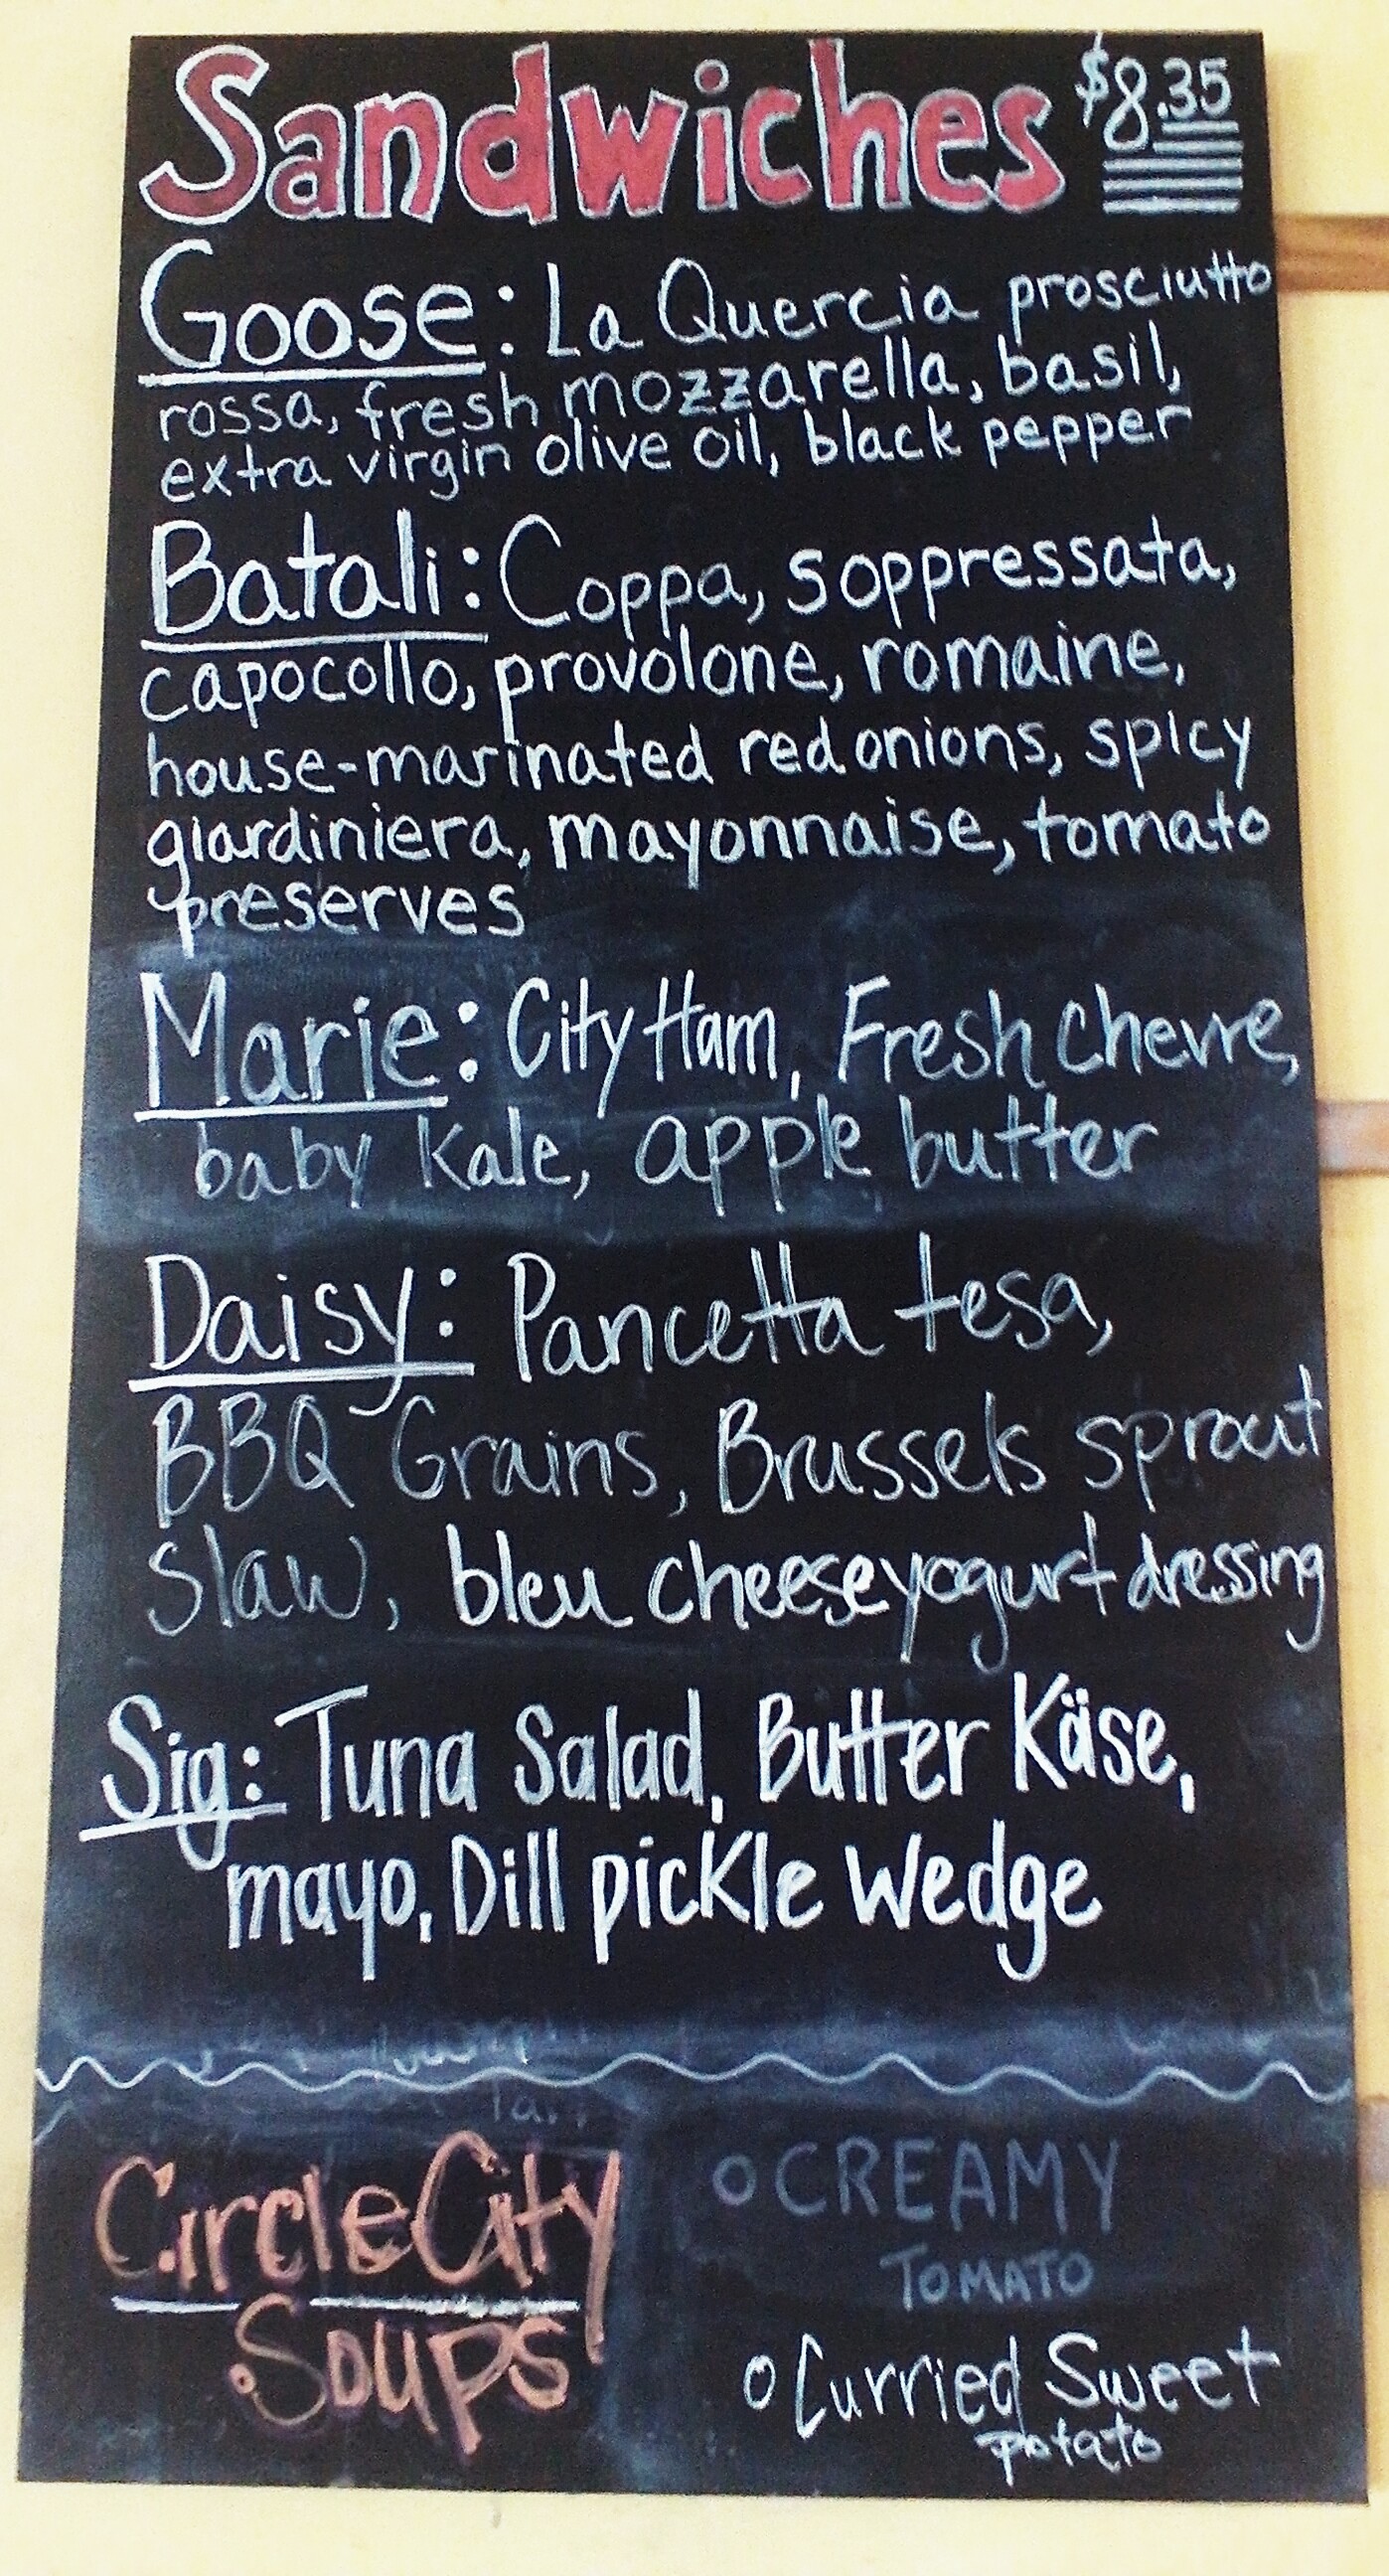 Sandwiches $8.35
Goose: La Quercia prosciutto
rossa, fresh mozzarella, basil,
extra virgin olive oil, black pepper
Batali: Coppa, soppressata,
capocollo, provolone, romaine,
house-marinated red onions, spicy
giardiniera, mayonnaise, tomato
preserves
Marie: City Ham, Fresh chevre,
baby kale, apple butter
Daisy: Pancetta tesa,
BBQ Grains, Brussels sprout
slaw, bleu cheese yogurt dressing
Sig: Tuna Salad, Butter Käse,
mayo, Dill pickle Wedge
Circle City
Soups
CREAMY
TOMATO
Curried Sweet
potato